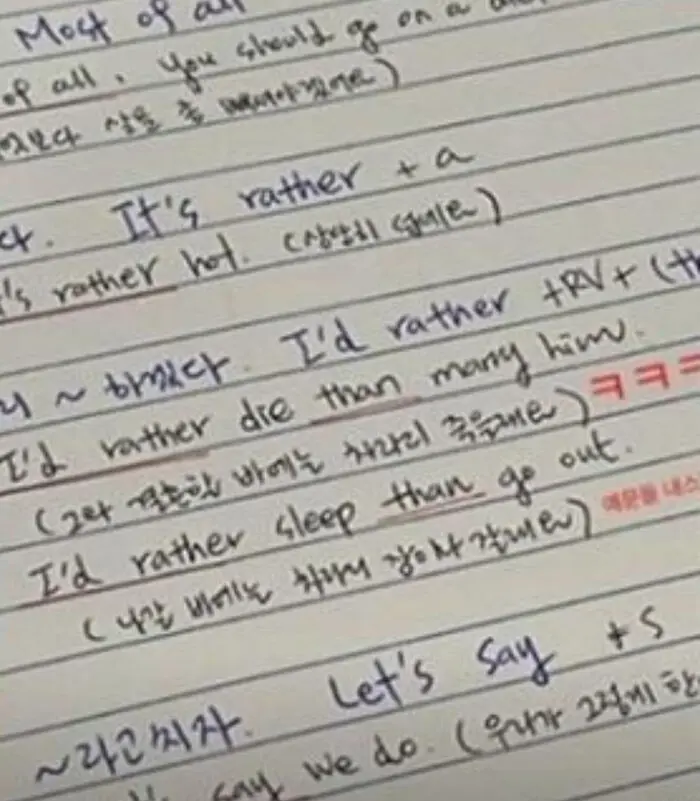 Most of all
of all, you should go on a
보다 살을 좀 빼야겠어요)
다. It's rather + a
's rather hot. (상당히 덥네요)
리 ~하겠다. I'd rather +RV+ (th
I'd rather die than marry him.
(그와 결혼할 바에는 차라리 죽을래요) ㅋㅋㅋ
I'd rather sleep than go out.
(나갈 바에는 차라리 잠이나 잘래요) 예문들 내스
~라고 치자. Let's say + S
say we do. (우리가 그렇게 한